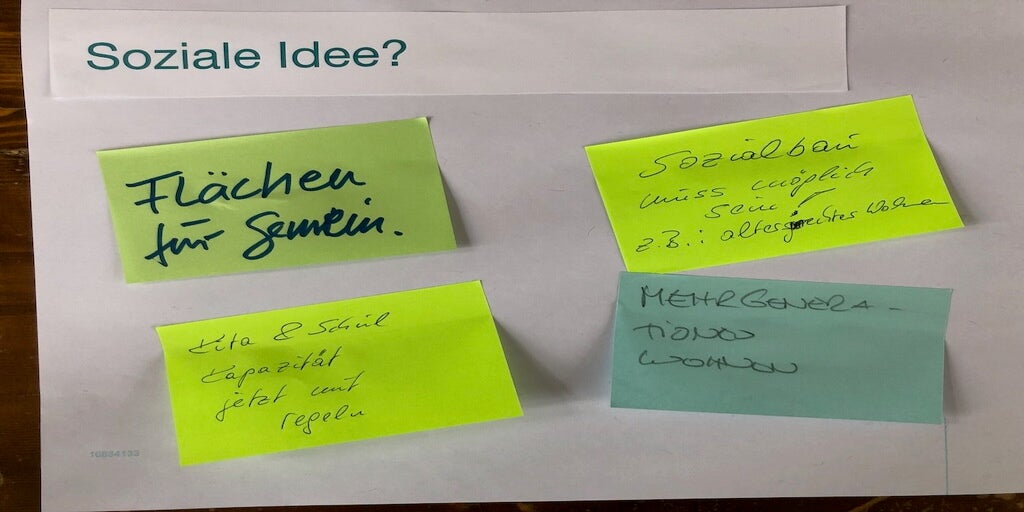 Soziale Idee?
Flächen
für Gemein.
Sozialbau
muss möglich
sein!
z.B.: altersgerechtes Wohnen
Kita & Schul
Kapazität
jetzt mit
regeln
MEHRGENERA-
TIONEN
WOHNEN
16834133